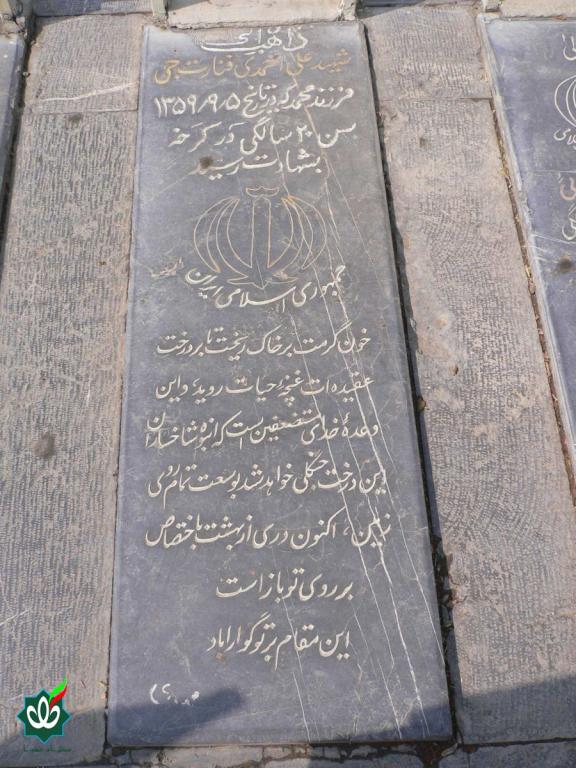 شهید علی احمدی فنارتجی
فرزند محمد که در تاریخ ۱۳۵۹/۹/۵
بسن ۲۰ سالگی در کرخه
بشهادت رسید
جمهوری اسلامی ایران
خون گرمت بر خاک ریخت تا بر درخت
عقیده ات غنچهٔ حیات روید و این
وعدهٔ خدای مستضعفین است که انبوه شاخساران
این درخت جنگلی خواهد شد بوسعت تمام روی
زمین، اکنون دری از بهشت باختصاص
بر روی تو باز است
این مقام بر تو گوارا باد